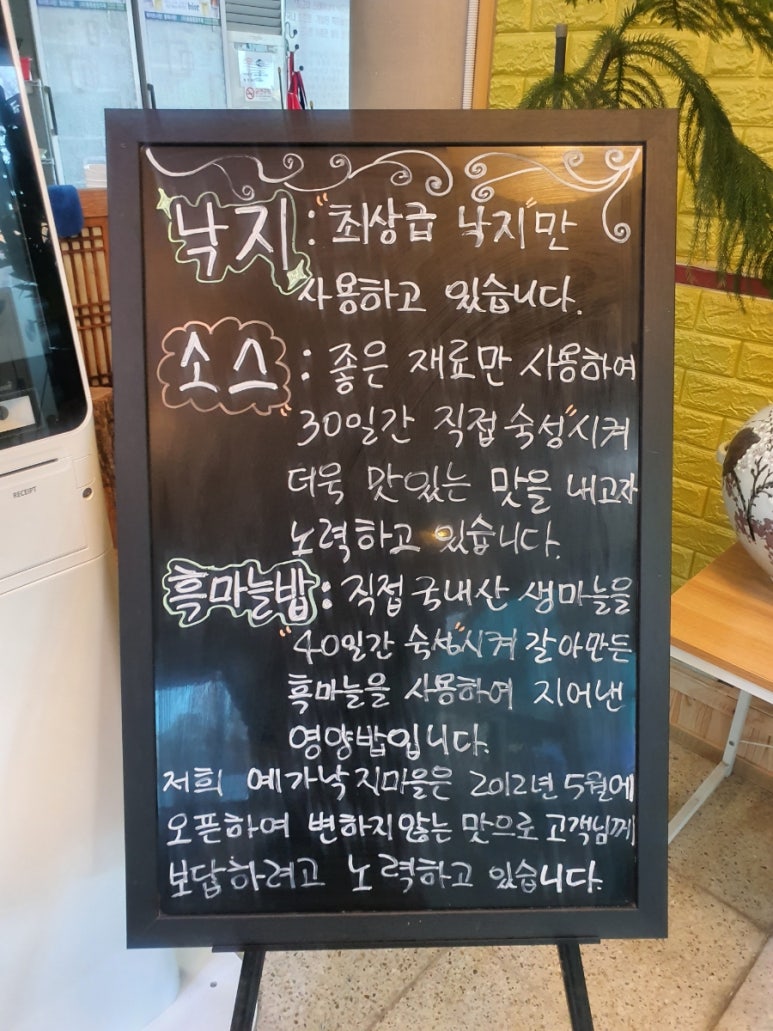 낙지 : "최상급 낙지"만
사용하고 있습니다.
소스 : 좋은 재료만 사용하여
"30일간 직접 숙성"시켜
더욱 맛있는 맛을 내고자
노력하고 있습니다.
흑마늘밥 : 직접 국내산 생마늘을
"40일간 숙성"시켜 갈아만든
흑마늘을 사용하여 지어낸
영양밥입니다.
저희 예가낙지마을은 2012년 5월에
오픈하여 변하지않는 맛으로 고객님께
보답하려고 노력하고 있습니다.
RECEIPT